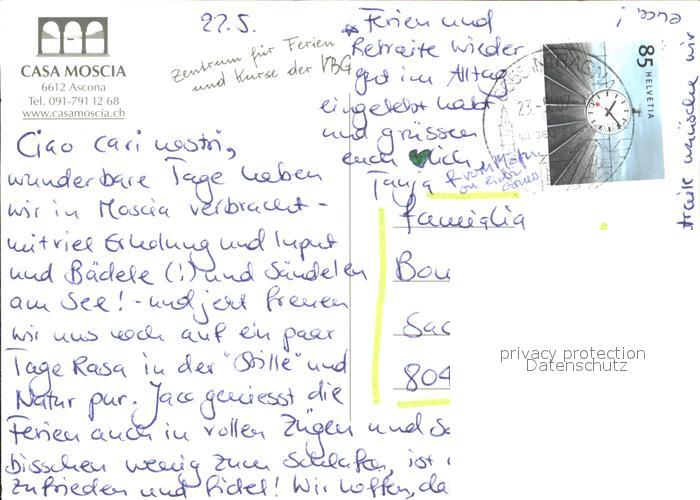 CASA MOSCIA
6612 Ascona
Tel. 091-791 12 68
www.casamoscia.ch
22.5.
Zentrum für Ferien
und Kurse der VBG
Ciao cari nostri,
wunderbare Tage haben
wir in Moscia verbracht -
mit viel Erholung und Input
und Bädele (!) und Sändelen
am See! - und jetzt freuen
wir uns noch auf ein paar
Tage Rasa in der "Stille" und
Natur pur. Jaco geniesst die
Ferien auch in vollen Zügen und
bisschen wenig zum Schlafen, ist
zufrieden und fidel! Wir hoffen, da
Ferien und
Retraite wieder
gut im Alltag
eingelebt habt
und grüssen
euch ♥lich
Tanja
famiglia
Bou
Sac
804
85 HELVETIA
23.
privacy protection
Datenschutz
euch!
wünschen wir